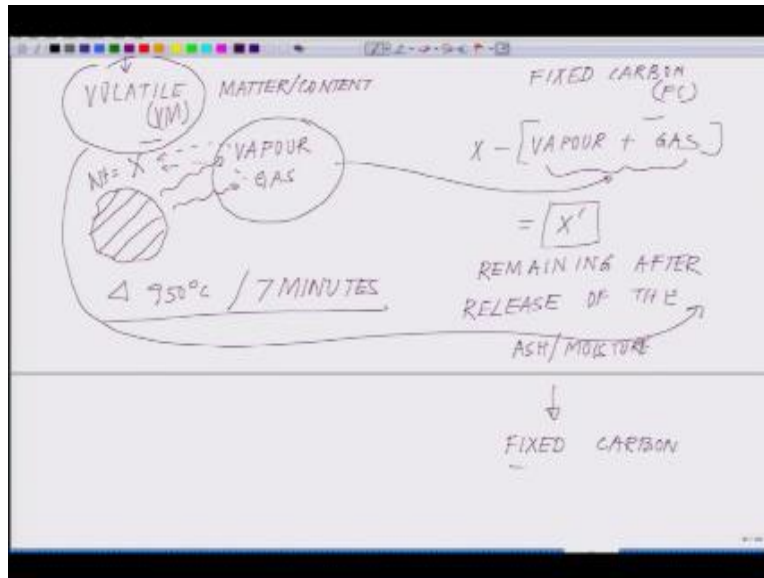 VOLATILE MATTER/CONTENT
(VM)
Wt= X
VAPOUR
GAS
Δ 950°C / 7 MINUTES
FIXED CARBON
(FC)
X - [VAPOUR + GAS]
= X'
REMAINING AFTER
RELEASE OF THE
ASH/MOISTURE
FIXED CARBON